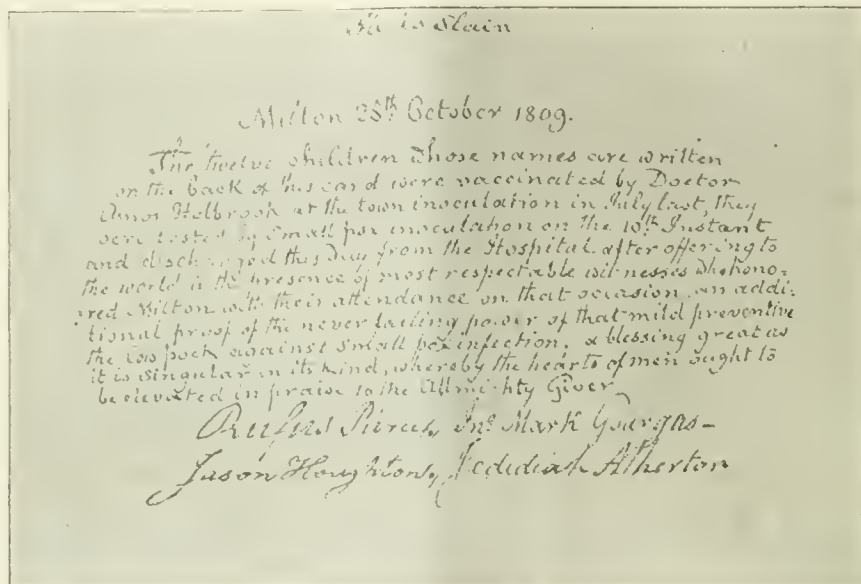 is Slain
Milton 25th October 1809.
The twelve children whose names are written
on the back of this card were vaccinated by Doctor
Amos Holbrook at the town inoculation in July last, they
were tested by small pox inoculation on the 10th Instant
and discharged this Day from the Hospital after offering to
the world in the presence of most respectable witnesses who hono-
red Milton with their attendance on that occasion, an addi-
tional proof of the never failing power of that mild preventive
the cow pock against small pox infection, a blessing great as
it is singular in its kind, whereby the hearts of men ought to
be elevated in praise to the Allmighty Giver
Rufus Pierce, Jno Mark Gourgas
Jason Houghton, Jedidiah Atherton